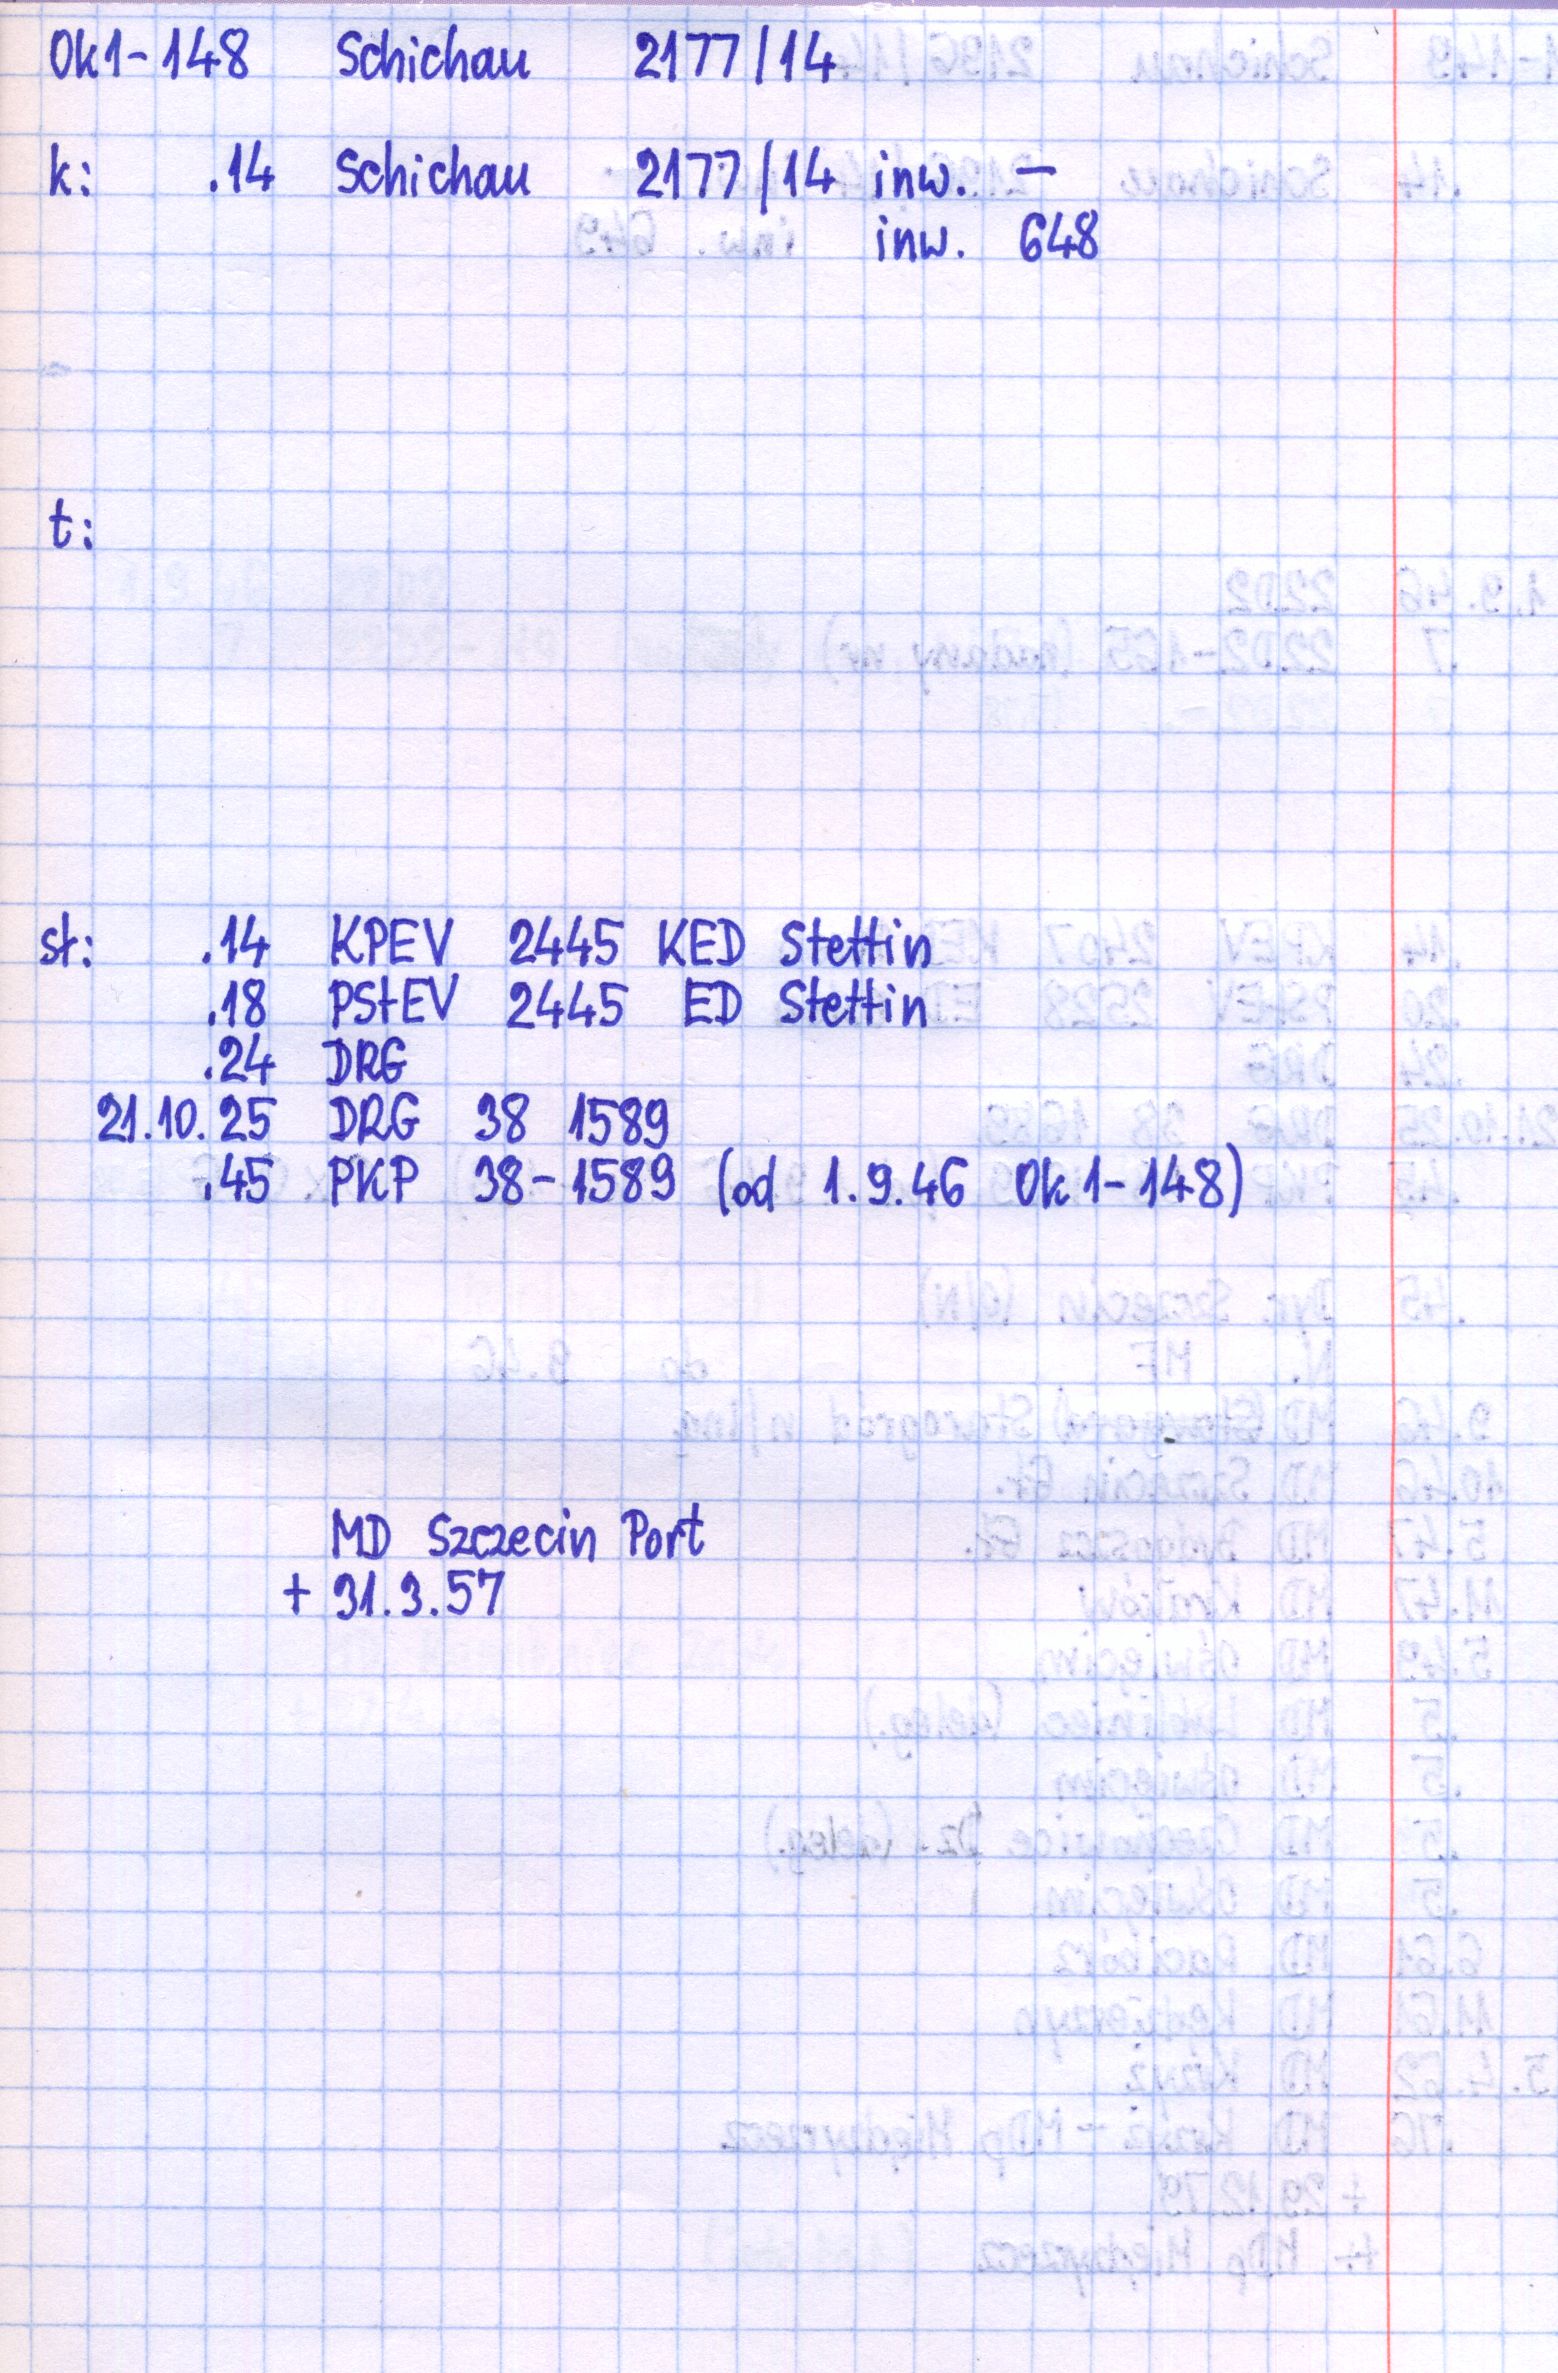 Ok1-148 Schichau 2177/14
k: .14 Schichau 2177/14 inw. —
inw. 648
t:
st: .14 KPEV 2445 KED Stettin
.18 PStEV 2445 ED Stettin
.24 DRG
21.10.25 DRG 38 1589
.45 PKP 38-1589 (od 1.9.46 Ok1-148)
MD Szczecin Port
+ 31.3.57